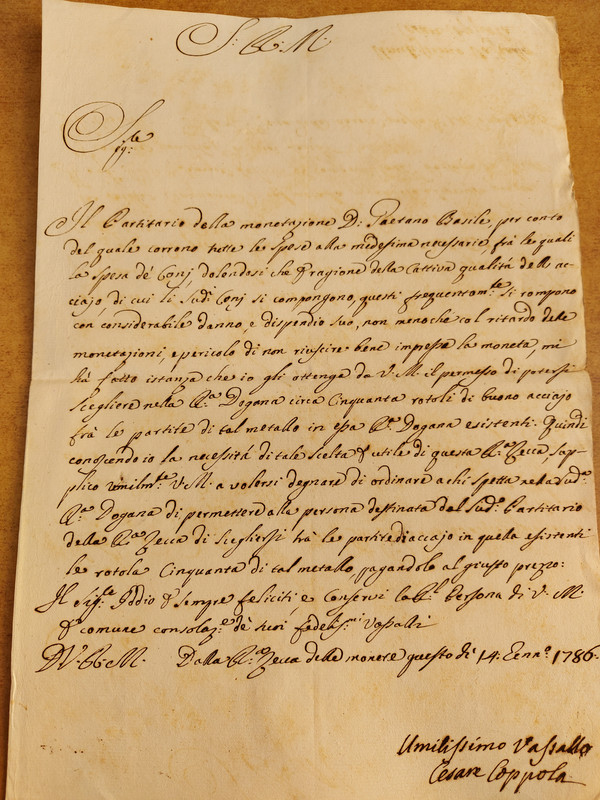 S: R: M:
Sig:re
Il Partitario della monetazione D: Gaetano Basile, per conto
del quale corrono tutte le spese alla medesima necessarie, frà le quali
la spesa de' Conj, dolendosi che p ragione della Cattiva qualità dell' ac-
ciajo, di cui li sud:i Conj si compongono, questi frequentem:te si rompono
con considerabile danno, e dispendio suo, non meno che col ritardo delle
monetazioni, e pericolo di non riuscire bene impressa la moneta, mi
hà fatto istanza che io gli ottenga da V. M. il permesso di potersi
scegliere nella R:a Dogana circa Cinquanta rotoli di buono acciajo
frà le partite di tal metallo in essa R:a Dogana esistenti. Quindi
conoscendo io la necessità di tale scelta p utile di questa R:a Zecca, sup-
plico umilm:te V. M. a volersi degnare di ordinare a chi spetta nella sud:a
R:a Dogana di permettere alla persona destinata dal sud:o Partitario
della R:a Zecca di sciegliersi frà le partite di acciajo in quella esistenti
le rotola Cinquanta di tal metallo pagandolo al giusto prezzo:
Il Sig:re Iddio p sempre feliciti, e conservi la R:l Persona di V. M.
p comune consolaz:e de' suoi fedeliss:mi Vassalli
D. V. R. M. Dalla R:a Zecca delle monete questo dì 14: Genn:o 1786.
Umilissimo Vassallo
Cesare Coppola